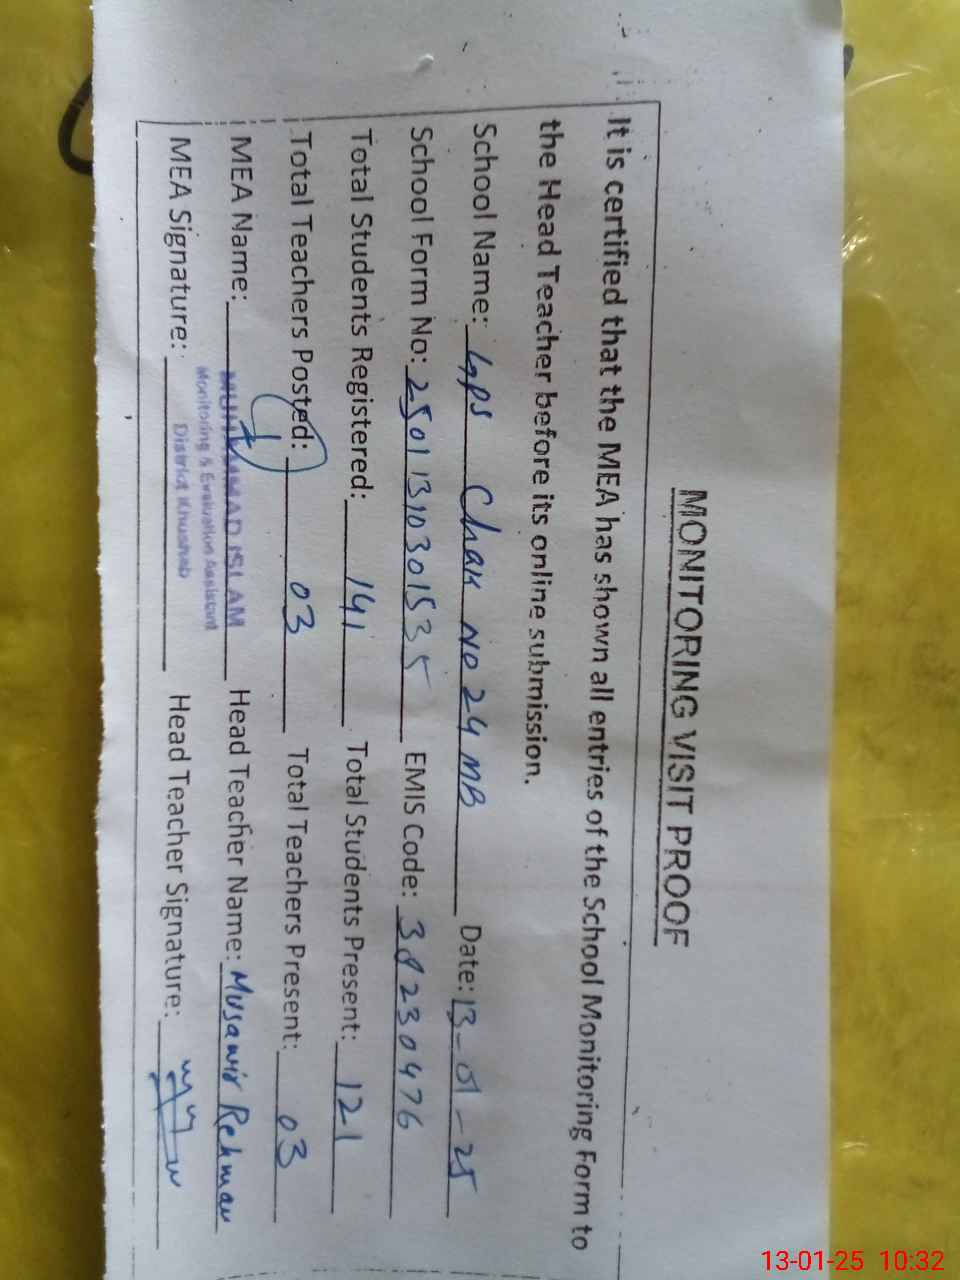 MONITORING VISIT PROOF
It is certified that the MEA has shown all entries of the School Monitoring Form to
the Head Teacher before its online submission.
School Name: GPS Chak No 24 MB Date: 13-01-25
School Form No: 25011310301535 EMIS Code: 38230476
Total Students Registered: 141 Total Students Present: 121
Total Teachers Posted: 03 Total Teachers Present: 03
MEA Name: MUHAMMAD ISLAM Head Teacher Name: Musawir Rehman
Monitoring & Evaluation Assistant
District Khushab
MEA Signature: Head Teacher Signature:
13-01-25 10:32